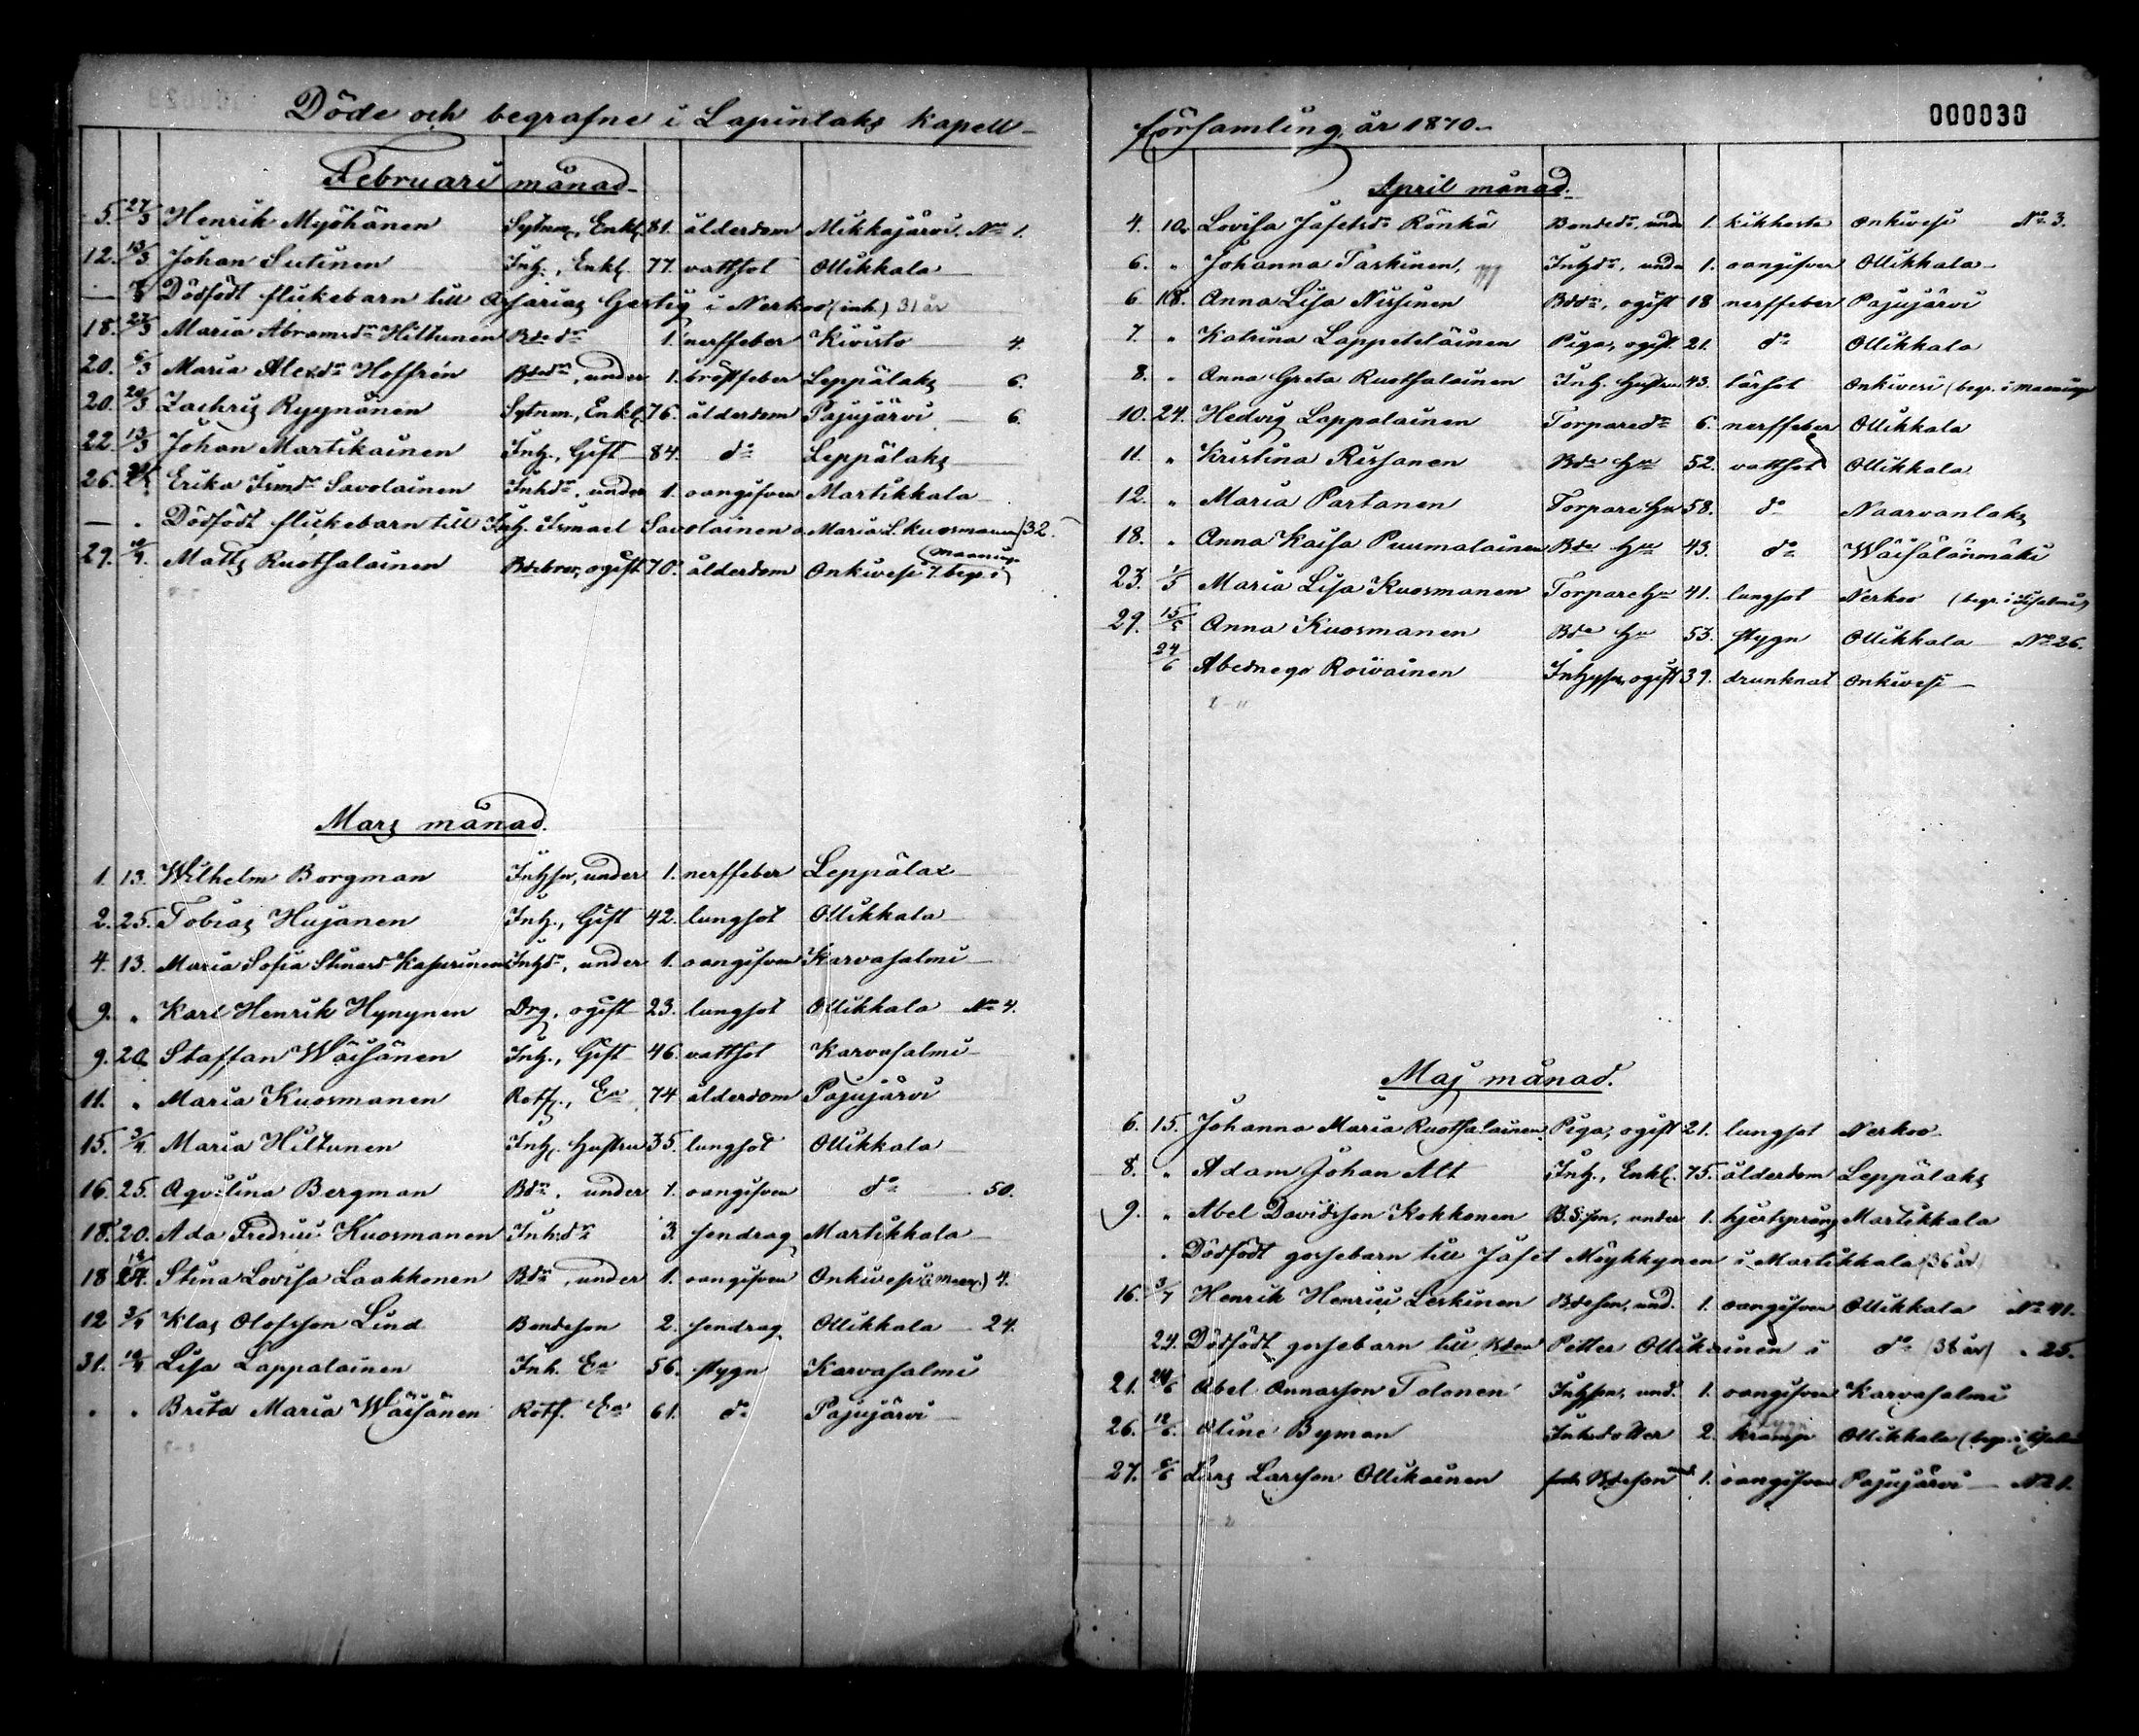 Döde och begrafne i Lapinlaks kapell-
Februari månad
5. 27/3 Henrik Myöhänen Sytnm., Enkl. 81. ålderdom Mikkajärvi. No 1.
12. 13/3 Johan Sutinen Inh., Enkl. 77. vattsot Ollikkala
— Dödfödt flickebarn till Asarias Gertig i Nerkoo (inh.) 31 år
18. 27/3 Maria Abramsdr Hiltunen Bdedr 1. nerffeber Kivisto 4.
20. 6/3 Maria Alexdr Hoffrén Bdedr, under 1. bröstfeber Leppälaks 6.
20. 20/3 Zachris Ryynänen Sytnm., Enkl. 76. ålderdom Pajujärvi 6.
22. 13/3 Johan Martikainen Inh., Gift 84. do Leppälaks
26. Erika Ismdr Savolainen Inhdr, under 1. oangifven Martikkala
— . Dödfödt flickebarn till Inh. Ismael Savolainen o Maria L. Kuosmanen 32.
27. 10/4. Matts Ruotsalainen Bdebror, ogift 70. ålderdom Onkivesi begr. i Maaninga
Mars månad.
1. 13. Wilhelm Borgman Inhsn, under 1. nerffeber Leppälax
2. 25. Tobias Hujanen Inh., Gift 42. lungsot Ollikkala
4. 13. Maria Sofia Kasurinen Inhdr, under 1. oangifven Karvasalmi
9. " Karl Henrik Hynynen Drg, ogift 23. lungsot Ollikkala No 4.
9. 20. Staffan Wäisänen Inh., Gift 46. vattsot Karvasalmi
11. " Maria Kuosmanen Rotf., Ea 74 ålderdom Pajujärvi
15. 3/4 Maria Hiltunen Inh. hustru 35. lungsot Ollikkala
16. 25. Aqvilina Bergman Bdr, under 1. oangifven do 50.
18. 20. Ada Fredrici Kuosmanen Inh:dr 3. sendrag Martikkala
18 Stina Lovisa Laakkonen Bdr, under 1. oangifven Onkivesi 4.
12 3/4 Klas Olofsson Lind Bondeson 2. sendrag Ollikkala 24.
31. 10/4 Lisa Lappalainen Inh. Ea 56. stygn Karvasalmi
" " Brita Maria Wäisänen Rotf. Ea 61. do Pajujärvi
församling år 1870.
000030
April månad.
4. 10. Lovisa Jafetsdr Rönkä Bondedr, under 1. kikhosta Onkivesi No 3.
6. " Johanna Taskinen, Inhdr, under 1. oangifven Ollikkala
6 18. Anna Lisa Nissinen Bdedr, ogift 18 nerffeber Pajujärvi
7. " Katrina Lappeteläinen Piga, ogift. 21. do Ollikkala
8. " Anna Greta Ruotsalainen Inh. hustru 43. tärsot Onkivesi (begr. i Maaninga
10. 24. Hedvig Lappalainen Torparedr 6. nerffeber Ollikkala
11. " Kristina Rissanen Bde hu 52. vattsot Ollikkala
12. " Maria Partanen Torpare hu 58. do Naarvanlaks
18. " Anna Kaisa Puumalainen Bde hu 43. do Wäisälänmäki
23. 1/5 Maria Lisa Kuosmanen Torpare hu 41. lungsot Nerkoo (begr. i Idensalmi)
29. 15/5 Anna Kuosmanen Bde hu 53. stygn Ollikkala No 26.
24/6 Abednego Roivainen Inhysn, ogift 39. drunknat Onkivesi
Maj månad.
6. 15. Johanna Maria Ruotsalainen Piga, ogift 21. lungsot Nerkoo
8. " Adam Johan Alt Inh., Enkl. 75. ålderdom Leppälaks
9. " Abel Davidsson Kokkonen B.d:son, under 1. hjertsprång Martikkala
" Dödfödt gossebarn till Jafet Möykkynen i Martikkala (36 år)
16. 3/7 Henrik Henrici Leskinen Bdeson, und. 1. oangifven Ollikkala No 41.
29. Dödfödt gossebarn till Bden Petter Ollikainen i do (38 år) " 25.
21. 24/6 Abel Annasson Tolonen Inhson, und. 1. oangifven Karvasalmi
26. 12/6. Aline Byman Inhsdotter 2. kramp Ollikkala (begr. i
27. 5/6 Lars Larsson Ollikainen Bdeson und. 1. oangifven Pajujärvi No 1.